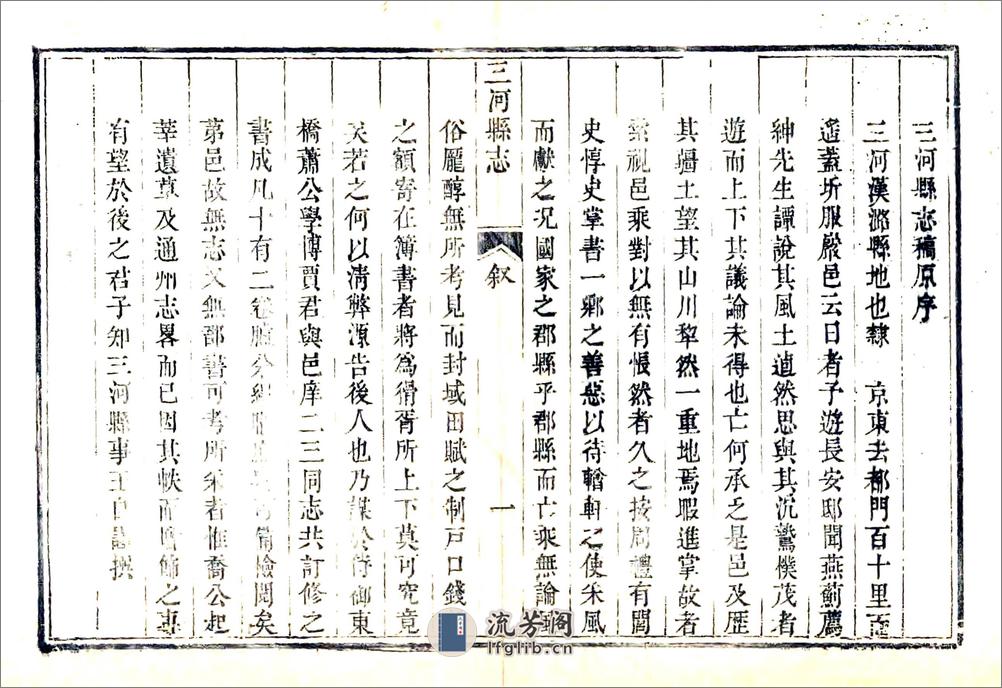 三河縣志稿原序
三河漢潞縣地也隸　京東去都門百十里
遥蓋圻服嚴邑云日者予遊長安邸聞燕薊薦
紳先生譚說其風土逌然思與其沉鷙樸茂者
遊而上下其議論未得也亡何承乏是邑及歷
其疆土望其山川犂然一重地焉暇進掌故者
索視邑乘對以無有悵然者久之按周禮有閭
史惇史掌書一鄉之善惡以待輶軒之使采風
而獻之况國家之郡縣乎郡縣而亡乘無論
三河縣志
叙
一
俗龐醇無所考見而封域田賦之制戸口錢
之額寄在簿書者將爲猾胥所上下莫可究竟
矣若之何以淸弊源告後人也乃謀於侍御東
橋蕭公學博賈君與邑庠二三同志共訂修之
書成凡十有二卷分備檢閱矣
第邑故無志又無郡書可考所采者惟喬公起
莘遺草及通州志畧而已因其帙而飾之専
有望於後之君子知三河縣事王自謹撰
流芳阁
lfglib.cn